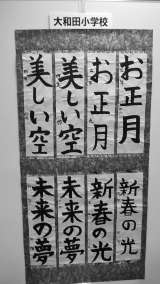 大和田小学校
お正月
お正月
美しい空
美しい空
新春の光
新春の光
未来の夢
未来の夢